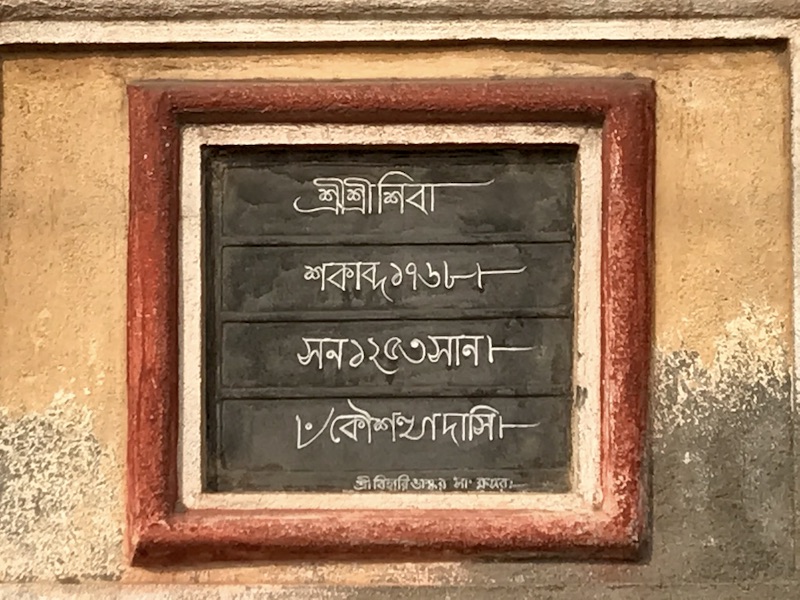 শ্রীশ্রীশিবা
শকাব্দ ১৭৬৮।
সন ১২৫৩ সান।
ঁকৌশল্যা দাসি।
শ্রী বিহারি ভাস্কর সাং